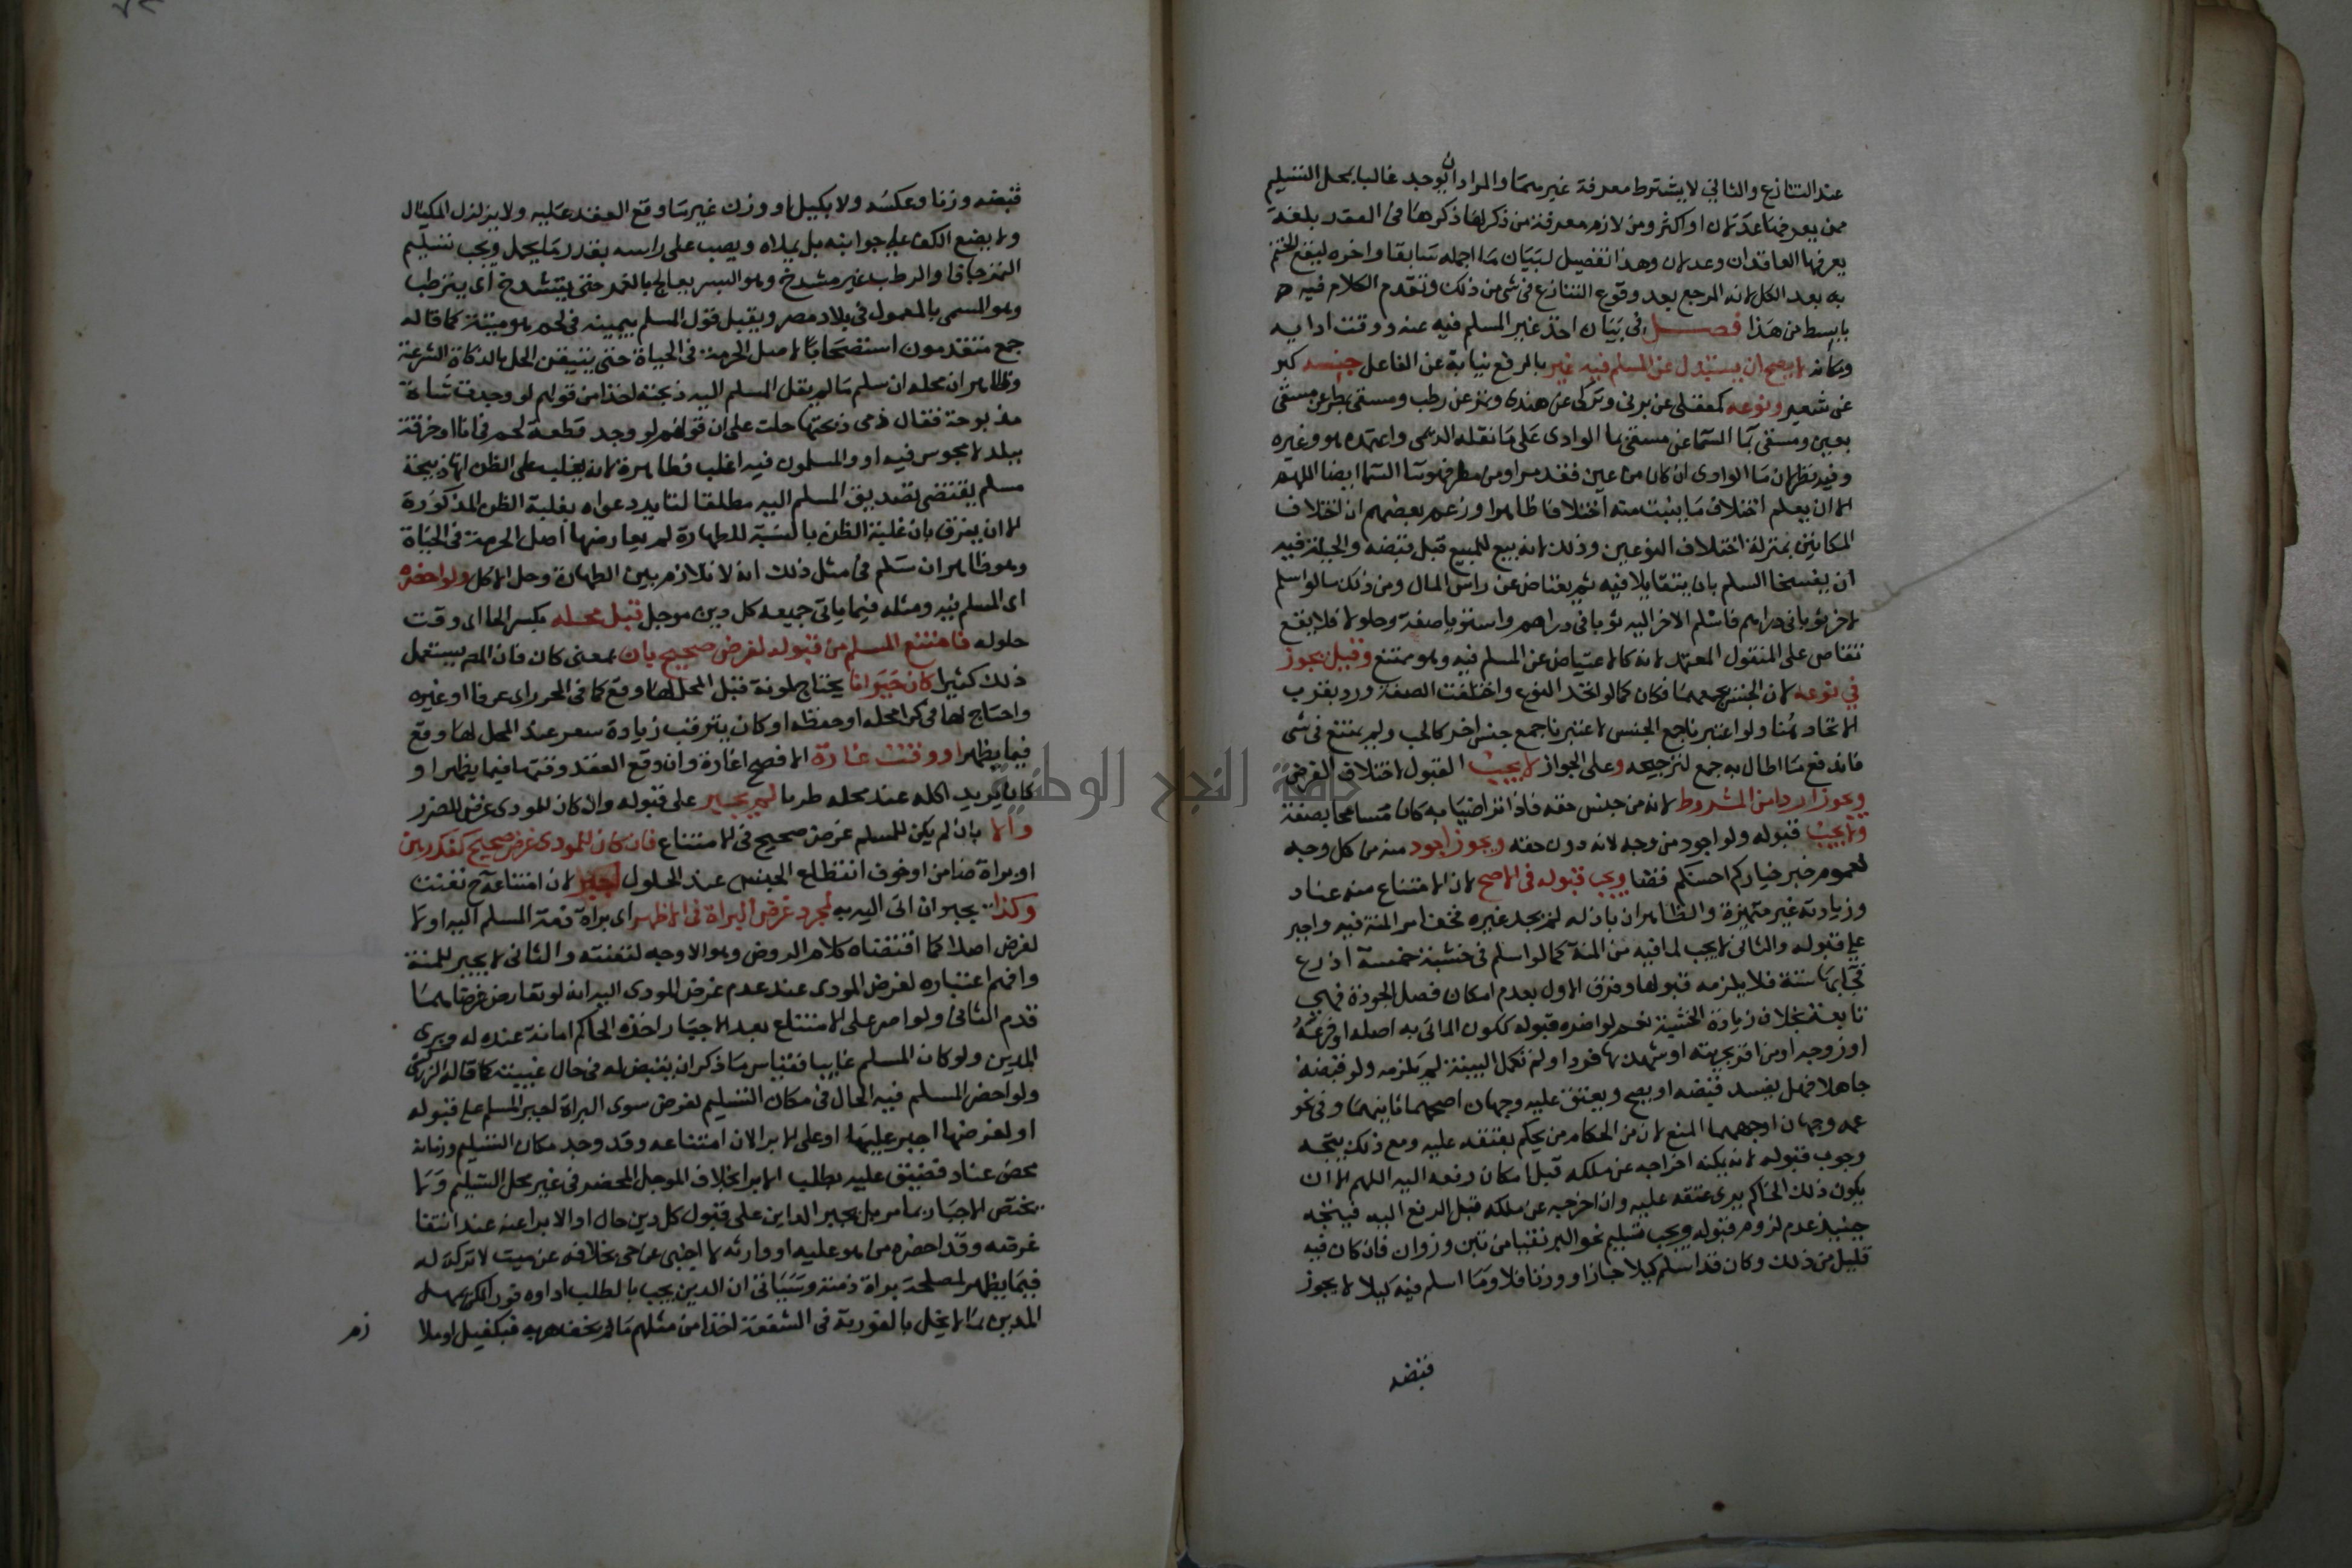 عند التنازع والثاني لا يشترط معرفة غيرهما والمراد ان يوجد غالبا بمحل التسليم
ممن يعرفها عدلان او اكثر ومن لازم معرفة من ذكر لها ذكرها في العقد بلغة
يعرفها العاقدان وعدلان وهذا تفصيل لبيان ما اجمله سابقا واخره ليقع الختم
به بعد الكل لانه المرجع بعد وقوع التنازع في شي من ذلك وتقدم الكلام فيه
بابسط من هذا فصل في بيان اخذ غير المسلم فيه عنه ووقت ادايه
ومكانه لا يصح ان يستبدل عن المسلم فيه غير بالرفع نيابة عن الفاعل جنسه كبر
عن شعير ونوعه كمعقلي عن برني وتركي عن هندي وتمر عن رطب ومسقي بمطر عن مسقي
بعين ومسقي بما السما عن مسقي بما الوادي على ما نقله الريمي واعتمده هو وغيره
وفيه نظر لان ما الوادي ان كان من عين فقد مر او من مطر فهو ما السما ايضا اللهم
الا ان يعلم اختلاف ما ينبت منه اختلافا ظاهرا وزعم بعضهم ان اختلاف
المكانين بمنزلة اختلاف النوعين وذلك لانه بيع للمبيع قبل قبضه والحيلة فيه
ان يفسخا السلم بان يتقايلا فيه ثم يعتاض عن راس المال ومن ذلك ما لو اسلم
لاخر ثوبا في دراهم فاسلم الاخر اليه ثوبا في دراهم واستويا صفة وحلولا فلا يقع
تقاص على المنقول المعتمد لانه كالاعتياض عن المسلم فيه وهو ممتنع وقيل يجوز
في نوعه لان الجنس يجمعهما فكان كما لو اتحد النوع واختلفت الصفة ورد بقرب
الاتحاد هنا ولو اعتبرنا جمع الجنس لاعتبرنا جمع جنس اخر كالحب ولم يمتنع في شي
فاندفع ما اطال به جمع لترجيحه وعلى الجواز لا يجب القبول لاختلاف الغرض
ويجوز اردا من المشروط لانه من جنس حقه فاذا تراضيا به كان مسامحا بصفة
ولا يجب قبوله ولو اجود من وجه لانه دون حقه ويجوز اجود منه من كل وجه
لعموم خبر خياركم احسنكم قضا ويجب قبوله في الاصح لان الامتناع منه عناد
وزيادته غير متميزة والظاهر ان باذله لم يجد غيره فخف امر المنة فيه واجبر
على قبوله والثاني لا يجب لما فيه من المنة كما لو اسلم في خشبة خمسة اذرع
فجا بها ستة فلا يلزمه قبولها وفرق الاول بعدم امكان فصل الجودة فهي
تابعة بخلاف زيادة الخشبة نعم لو اضره قبوله ككون الماتي به اصله او فرعه
او زوجه او من اقر بحريته او شهد بها فرد او لم تكمل البينة لم يلزمه ولو قبضه
جاهلا فهل يفسد قبضه او يصح ويعتق عليه وجهان اصحهما ثانيهما وفي نحو
عمه وجهان اوجههما المنع لان من الحكام من يحكم بعتقه عليه ومع ذلك يتجه
وجوب قبوله لانه يمكنه اخراجه عن ملكه قبل امكان رفعه اليه اللهم الا ان
يكون ذلك الحاكم يرى عتقه عليه وان اخرجه عن ملكه قبل الرفع اليه فيتجه
حينيذ عدم لزوم قبوله ويجب تسليم نحو البر نقيا من تبن وزوان فان كان فيه
قليل من ذلك وكان قد اسلم كيلا جاز او وزنا فلا وما اسلم فيه كيلا لا يجوز
قبضه
قبضه وزنا وعكسه ولا بكيل او وزن غير ما وقع العقد عليه ولا يزلزل المكيال
ولا يضع الكف على جوانبه بل يملاه ويصب على راسه بقدر ما يحمل ويجب تسليم
التمر جافا والرطب غير مشدخ وهو البسر يعالج بالغمر حتى يتشدخ اى يترطب
وهو المسمى بالمعمول في بلاد مصر ويقبل قول المسلم بيمينه في لحم هو ميتة كما قاله
جمع متقدمون استصحابا لاصل الحرمة في الحياة حتى يتيقن الحل بالذكاة الشرعية
وظاهر ان محله ان سلم ما لم يقل المسلم اليه ذبحته اخذا من قولهم لو وجدت شاة
مذبوحة فقال ذمي ذبحتها حلت على ان قولهم لو وجد قطعة لحم في انا او خرقة
ببلد لا مجوس فيه او والمسلمون فيه اغلب فطاهرة لانه يغلب على الظن انها ذبيحة
مسلم يقتضي تصديق المسلم اليه مطلقا لتايد دعواه بغلبة الظن المذكورة
الا ان يفرق بان غلبة الظن بالنسبة للطهارة لم يعارضها اصل الحرمة في الحياة
وهو ظاهر ان سلم في مثل ذلك انه لا تلازم بين الطهارة وحل الاكل ولو احضره
اى المسلم فيه ومثله فيما ياتي جميعه كل دين موجل قبل محله بكسر الحا اى وقت
حلوله فامتنع المسلم من قبوله لغرض صحيح بان بمعنى كان فان المص يستعمل
ذلك كثيرا كان حيوانا يحتاج لمونة قبل المحل لها وقع كما في المحرر اى عرفا او غيره
واحتاج لها في كرا محله او حفظه او كان يترقب زيادة سعر عند المحل لها وقع
فيما يظهر او وقت غارة الافصح اغارة وان وقع العقد وقتها فيما يظهر او
كان يريد اكله عند محله طريا لم يجبر على قبوله وان كان للمودي غرض للضرر
والا بان لم يكن للمسلم غرض صحيح في الامتناع فان كان للمودي غرض صحيح كفك رهن
او براة ضامن او خوف انقطاع الجنس عند الحلول اجبر لان امتناعه ح تعنت
وكذا يجبر ان اتى اليه به لمجرد غرض البراة في الاظهر اى براة ذمة المسلم اليه اولا
لغرض اصلا كما اقتضاه كلام الروض وهو الاوجه لتعنته والثاني لا يجبر للمنة
وافهم اعتباره لغرض المودي عند عدم غرض المودى اليه انه لو تعارض غرضاهما
قدم الثاني ولو اصر على الامتناع بعد الاجبار اخذه الحاكم امانة عنده له وبرى
المدين ولو كان المسلم غايبا فقياس ما ذكر ان يقبض له في حال غيبته كما قاله الزركشي
ولو احضر المسلم فيه الحال في مكان التسليم لغرض سوى البراة اجبر المسلم على قبوله
او لغرضها اجبر عليها او على الابرا لان امتناعه وقد وجد مكان التسليم وزمانه
محض عناد فضيق عليه بطلب الابرا بخلاف الموجل المحضر في غير محل التسليم ولا
يختص الاجبار بما مر بل يجبر الداين على قبول كل دين حال او الابرا عنه عند انتفا
غرضه وقد احضره من هو عليه او وارثه لا اجنبي عن حي بخلافه عن ميت لا تركة له
فيما يظهر لمصلحة براة ذمته وسياتي ان الدين يجب بالطلب اداوه فورا لكن يمهل
المدين لما لا يخل بالفورية في الشفعة اخذا من مثلهم ما لم يخف هربه فبكفيل او ملا
زم
جامعة النجاح الوطنية